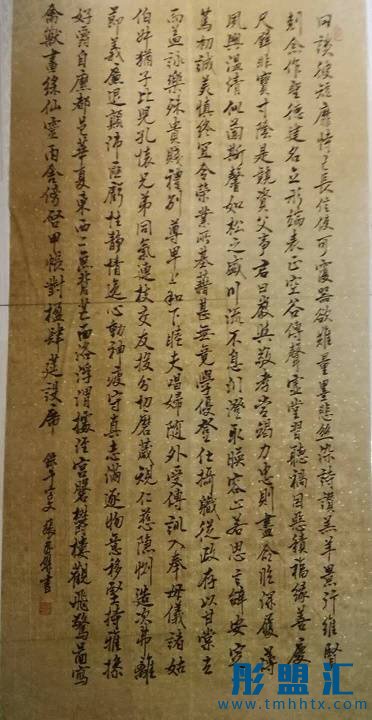 罔談彼短靡恃己長信使可覆器欲難量墨悲絲染詩讚羔羊景行維賢
剋念作聖德建名立形端表正空谷傳聲虛堂習聽禍因惡積福緣善慶
尺璧非寶寸陰是競資父事君曰嚴與敬孝當竭力忠則盡命臨深履薄
夙興溫凊似蘭斯馨如松之盛川流不息淵澄取映容止若思言辭安定
篤初誠美慎終宜令榮業所基籍甚無竟學優登仕攝職從政存以甘棠去
而益詠樂殊貴賤禮別尊卑上和下睦夫唱婦隨外受傅訓入奉母儀諸姑
伯叔猶子比兒孔懷兄弟同氣連枝交友投分切磨箴規仁慈隱惻造次弗離
節義廉退顛沛匪虧性靜情逸心動神疲守真志滿逐物意移堅持雅操
好爵自縻都邑華夏東西二京背芒面洛浮渭據涇宮殿磐鬱樓觀飛驚圖寫
禽獸畫綵仙靈丙舍傍啟甲帳對楹肆筵設席
錄千字文 張書
彤盟汇
www.tmhhtx.com